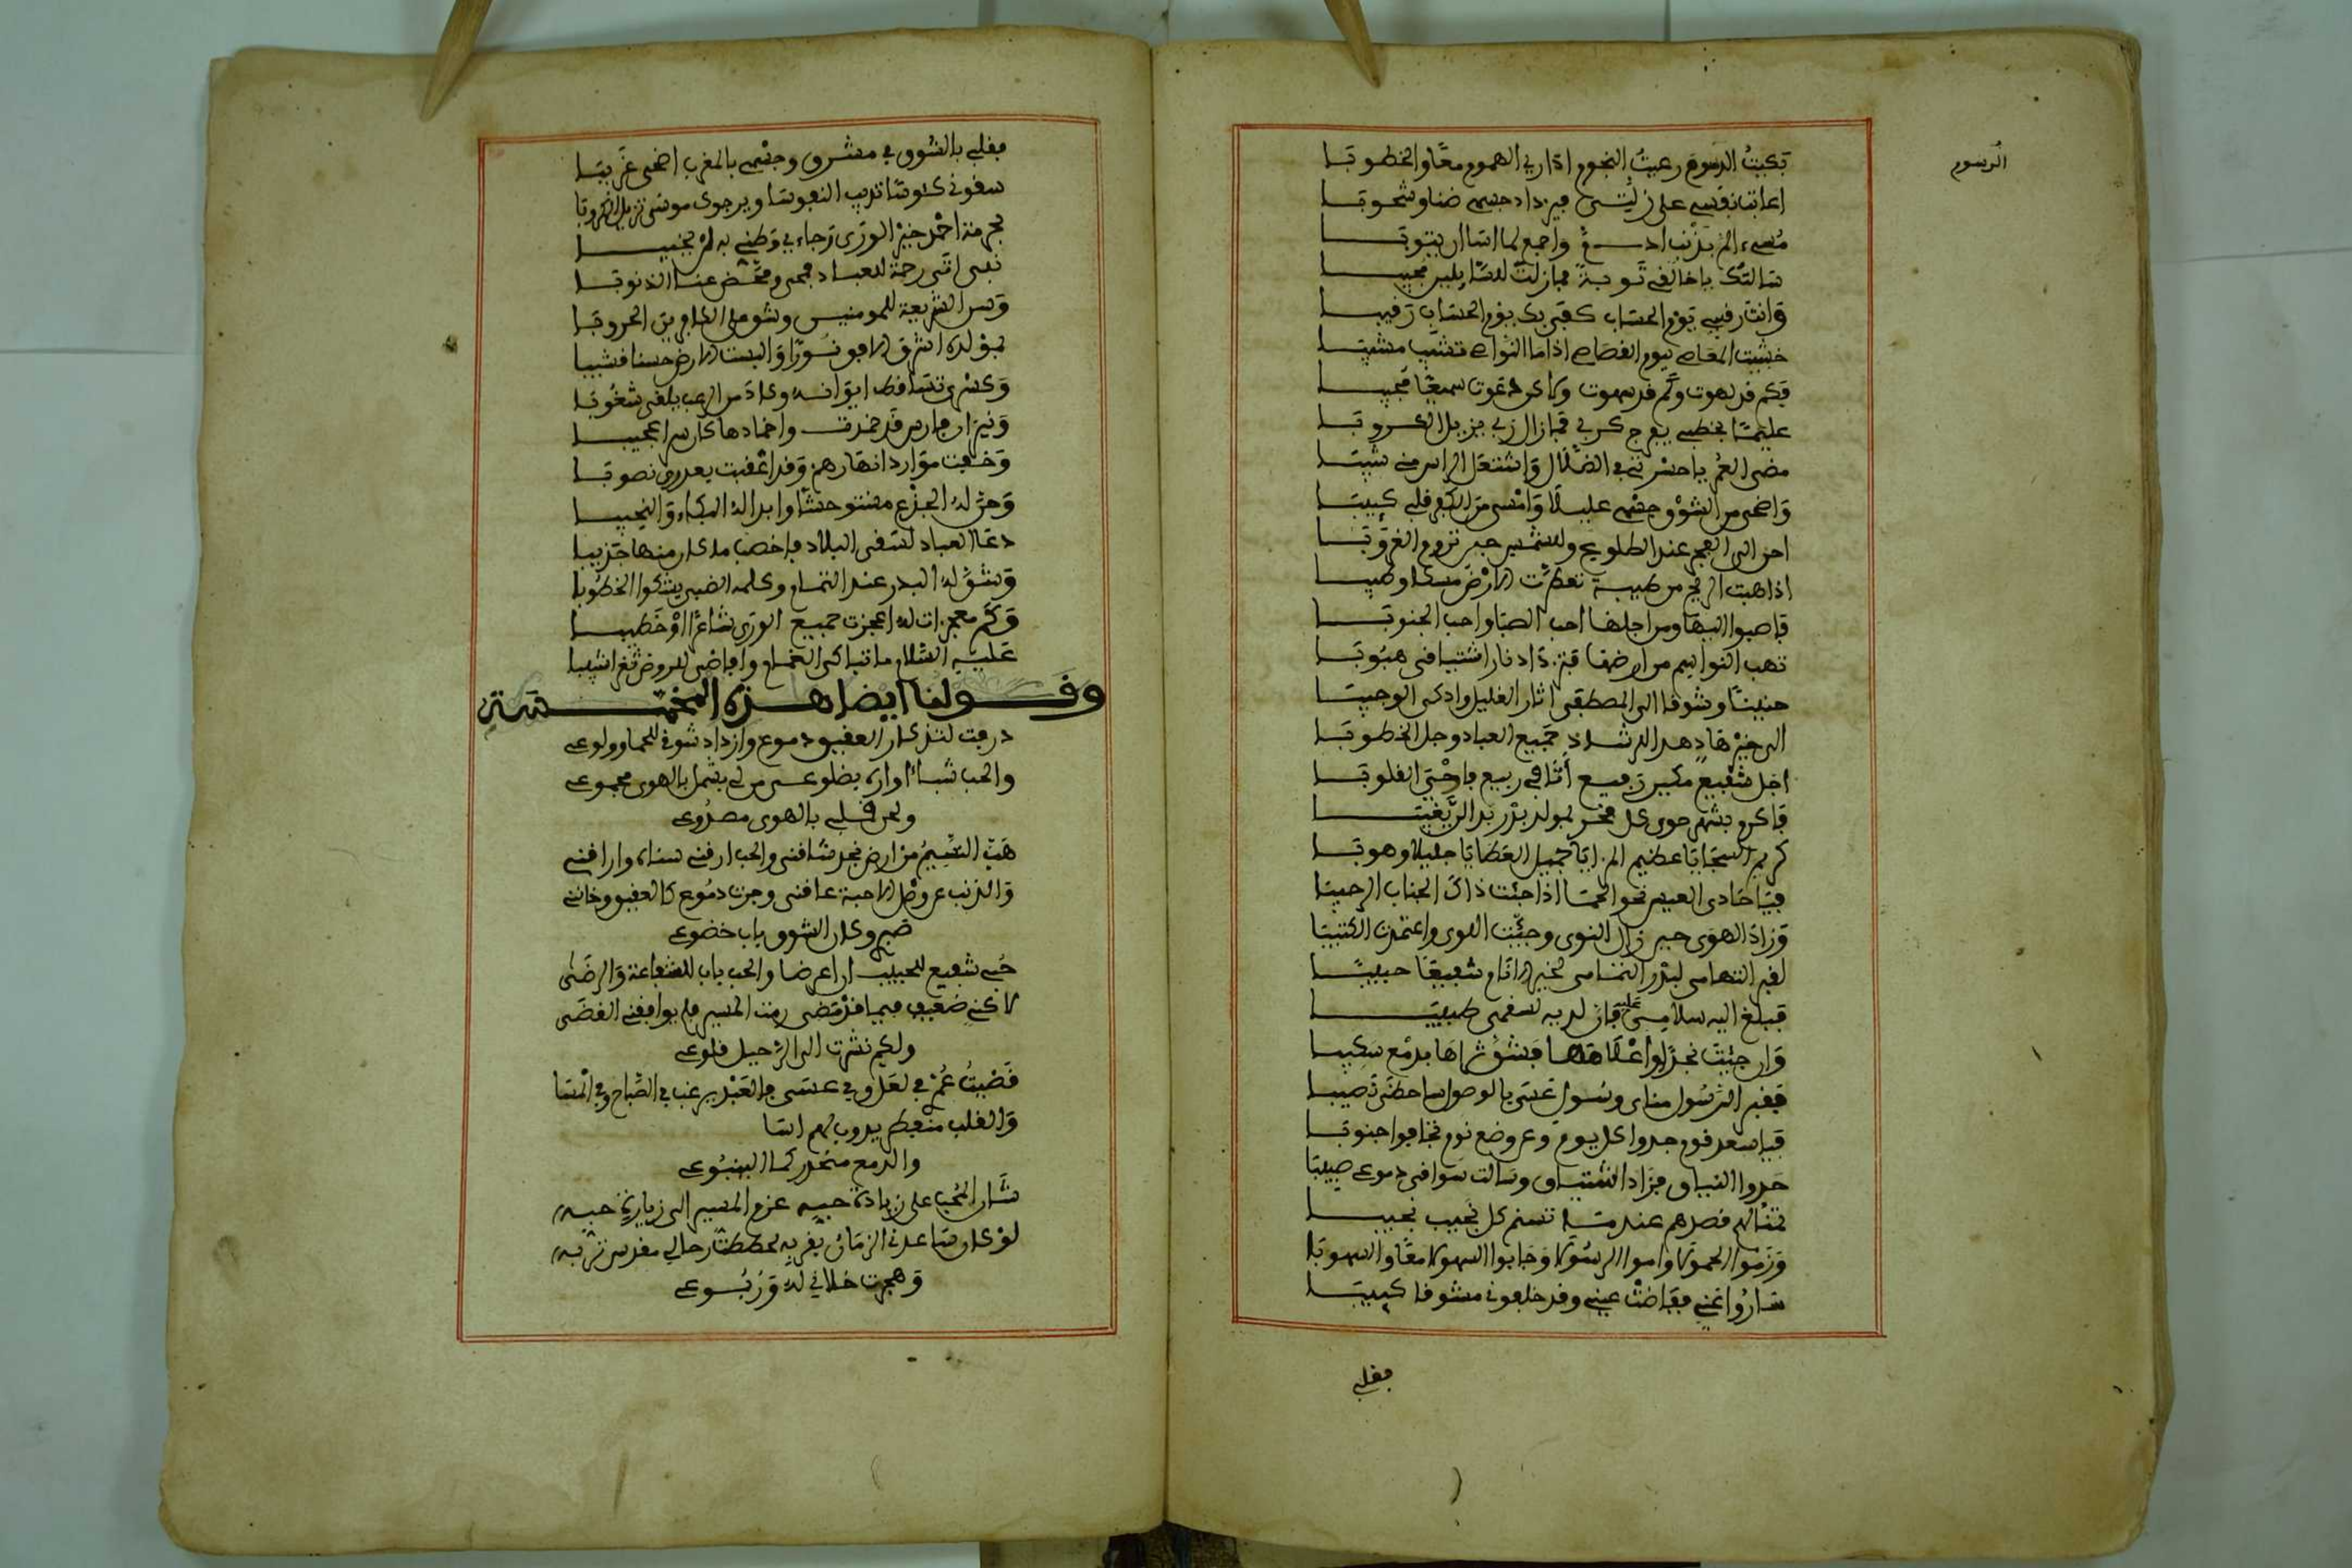 الرسوم
بكيت الرسوم رعيت النجوم اداري الهموم معا والخطوبا
اعاتب نفسي على زلتي فيزداد جسمي ضنا وشحوبا
مسيء الم بذنب واجمع لما اسا ان يتوبا
سالتك يا خالقي توبة فمازلت للسايلين مجيبا
وانت رقيبي يوم الحساب كفى بك يوم الحساب رقيبا
خشيت المعاصي ليوم القصاص اذا ما النواصي تشيب مشيبا
فكم قد لهوت وكم قد سهوت ولاكن دعوت سميعا مجيبا
عليما بخطبي يفرج كربي فمازال ربي يزيل الكروبا
مضى العمر يا حسرتي في الضلال واشتعل الراس مني شيبا
واضحى من الشوق جسمي عليلا وامسى من قلبي كييبا
احن الى الفجر عند الطلوع وللشمس حين تروم الغروبا
اذا هبت الريح من طيبة تعطرت الارض مسكا وطيبا
فاصبوا اليها ومن اجلها احب الصبا واحب الجنوبا
تهب النواسم من ارضها فتزداد نار اشتياقي هبوبا
حنينا وشوقا الى المصطفى اثار الغليل واذكى الوجيبا
الى خير هاد هدا للرشاد جميع العباد وجل الخطوبا
اجل شفيع مكين رفيع اتا في ربيع فاحيى القلوبا
فاكرم بشهر حوى كل فخر بمولد بدر
كريم السجايا عظيم المزايا جميل العطايا جليلا وهوبا
فيا حادى العيس نحو الحما اذا جئت ذاك الجناب الرحيبا
وزاد الهوى حين زال النوى وجئت اللوى واعتمدت الكثيبا
لقبر التهامي لبدر التمام لخير الانام شفيعا حبيبا
فبلغ اليه سلامي عليه فان لديه لسقمى طبيبا
وان جئت نجدا واعلامها فشق ثراها بدمع سكيبا
فقبر الرسول مناى وسول عسى بالوصول احظى نصيبا
فيا سعد قوم جدوا كل يوم وعن وضع نوم تجافوا جنوبا
حدوا النياق فزاد اشتياق وسالت سواقى دموعي صبيبا
تسنم كل نجيب نجيبا
وزموا الحمولا واموا الرسولا وجابوا السهولا معا والسهوبا
ساروا عني ففاضت عيني وقد خلفوني مشوقا كييبا
فقلبي
فقلبي بالشوق في مشرق وجسمي بالمغرب اضحى غريبا
سقوني كئوسا تذيب النفوسا ويرجوى موسى تزيل الكروبا
بحرمة احمد خير الورى رجاءي وظني به لن يخيبا
نبي اتى رحمة للعباد فمحى ومحص عنا الذنوبا
وسن الشريعة للمومنين وشن على الكافرين الحروبا
بمولده اشرق الافق نورا والبست الارض حسنا قشيبا
وكسرى تساقط ايوانه وكاد من الرعب يلقى شعوبا
ونيران فارس قد خمدت واخمادها كان سرا عجيبا
وخفت موارد انهارهم وقد اعقبت بعد ري نضوبا
وحن له الجذع مستوحشا وابدا له البكاء والنحيبا
دعا العباد لسقي البلاد فاخصب ما كان منها جديبا
وشق له البدر عند التمام وكلمه الضبي يشكوا الخطوبا
وكم معجزات له اعجزت جميع الورى شاعرا او خطيبا
عليه السلام ما تباكى الغمام وافاضى للروض ثغرا شنيبا
وقولنا ايضا هذه المخمسة
ذرفت لتذكار العقيق دموعي وازداد شوقي للحما وولوعي
والحب شب اواره بضلوعي من لي بشمل بالهوى مجموعي
ولكن قلبي بالهوى مصدوعي
هب النسيم من ارض نجد شاقني والحب ارقني سناه واراقني
والذنب عن وصل الاحبة عاقني وجرت دموعي كالعقيق وخانني
صبري وكان الشوق باب خضوعي
حبي شفيع للحبيب ان اعرضا والحب باب للشفاعة والرضى
لاكنني ضعيف فيما قد مضى رمت المسير فلم يوافقني القضى
ولكم نشرت الى الرحيل قلوعي
قضيت عمري في لعل وفي عسى والعبد يرغب في الصباح وفي المسا
والقلب منفطر يذوب لهم اسا
والدمع منحدر كما الينبوعي
شان المحب على زيادة حبه عزم المسير الى زيارة حبه
لو كان ساعدني الزمان بقربه لحططت رحالي مقدس تربه
وهجرت خلاني له وربوعي